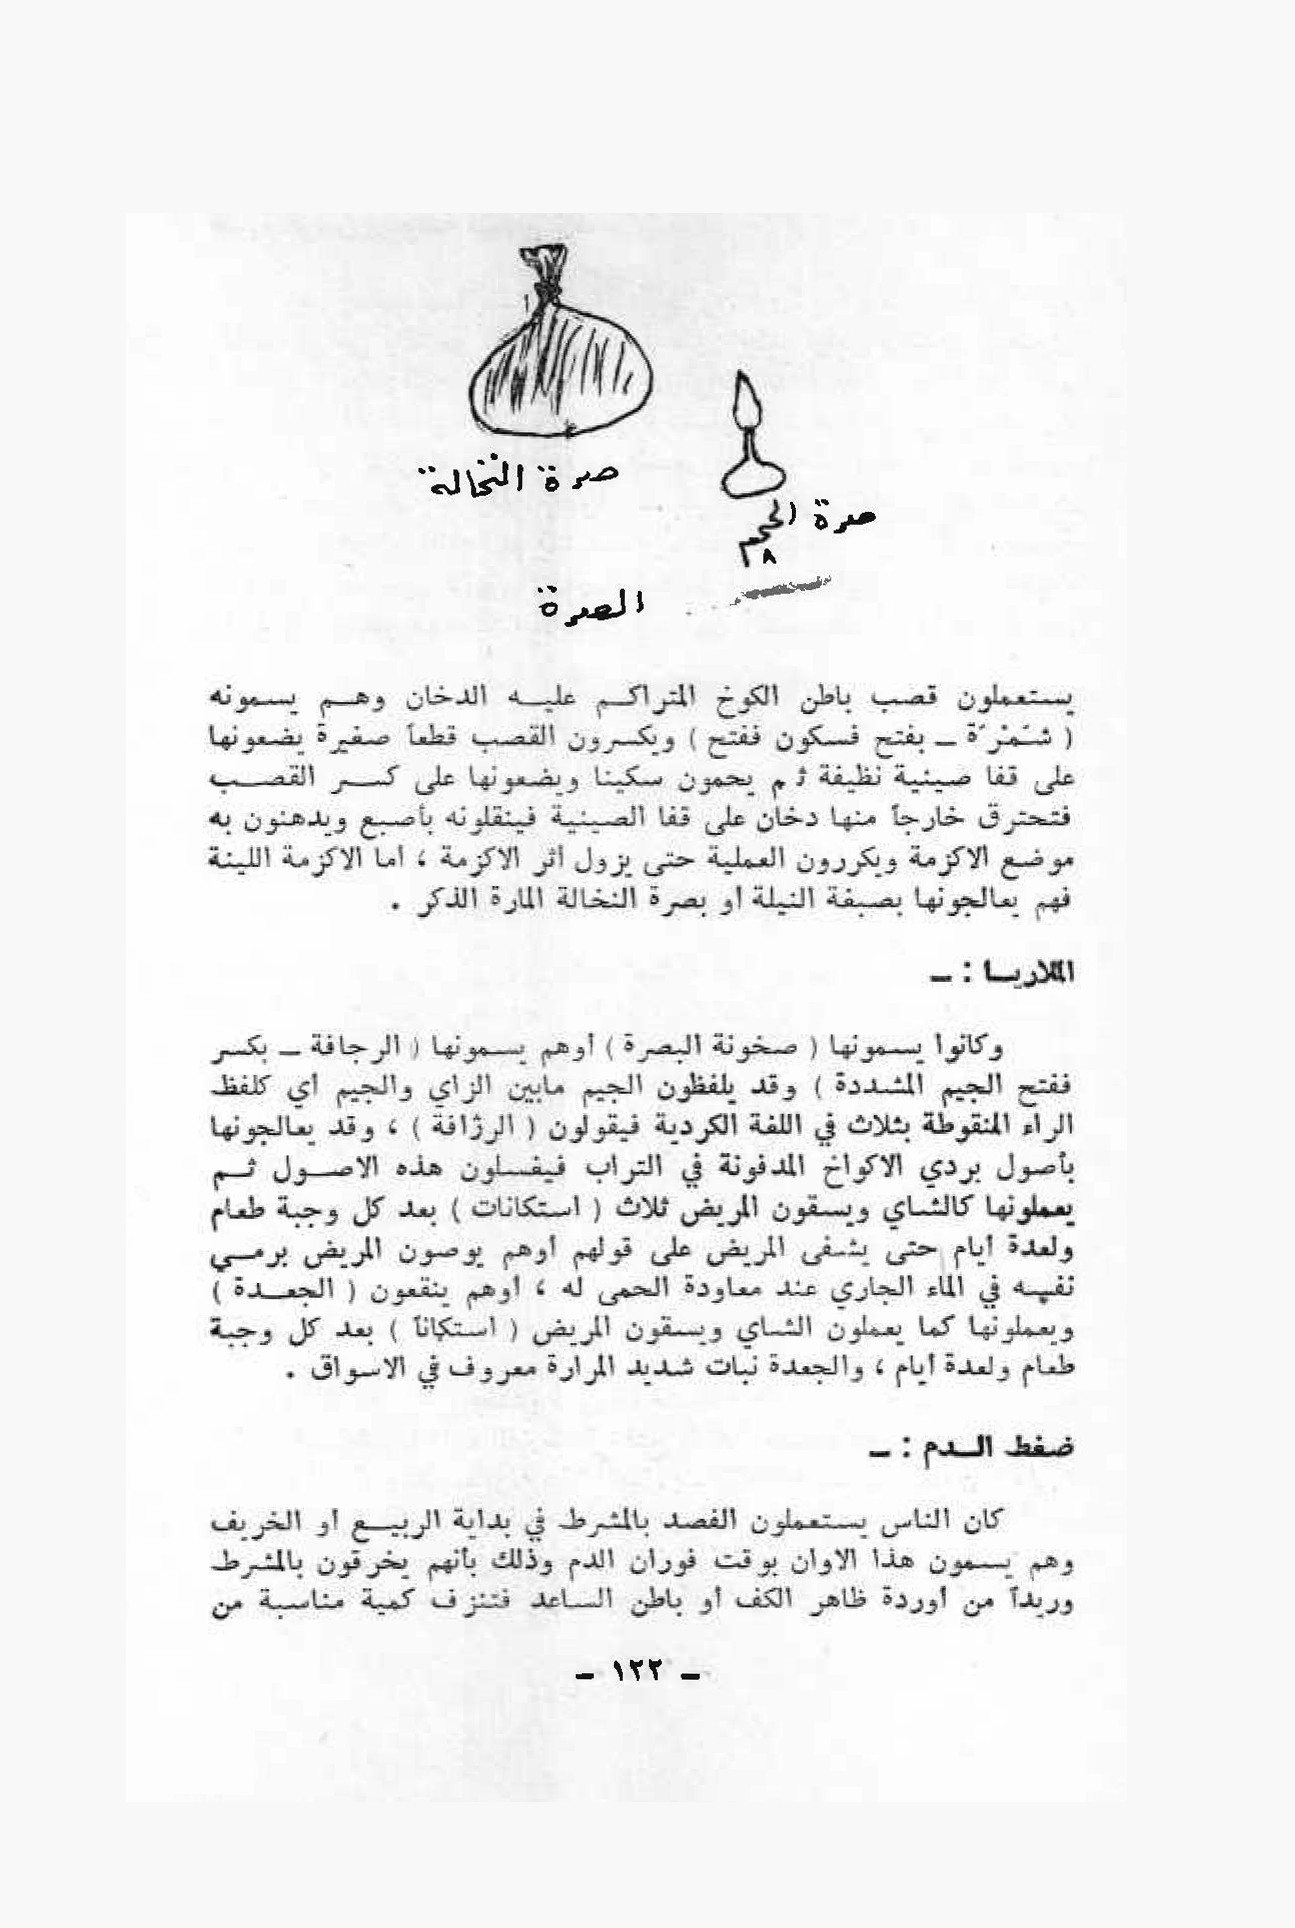 صرة النخالة
صرة الحجم
٨
الصرة
يستعملون قصب باطن الكوخ المتراكم عليه الدخان وهم يسمونه
( شَمْرَة ــ بفتح فسكون ففتح ) ويكسرون القصب قطعاً صغيرة يضعونها
على قفا صينية نظيفة ثم يحمون سكينا ويضعونها على كسر القصب
فتحترق خارجاً منها دخان على قفا الصينية فينقلونه بأصبع ويدهنون به
موضع الاكزمة ويكررون العملية حتى يزول أثر الاكزمة ، أما الاكزمة اللينة
فهم يعالجونها بصبغة النيلة أو بصرة النخالة المارة الذكر .
الملاريا : ــ
وكانوا يسمونها ( صخونة البصرة ) أوهم يسمونها ( الرجافة ــ بكسر
ففتح الجيم المشددة ) وقد يلفظون الجيم مابين الزاي والجيم أي كلفظ
الراء المنقوطة بثلاث في اللغة الكردية فيقولون ( الرژافة ) ، وقد يعالجونها
بأصول بردي الاكواخ المدفونة في التراب فيغسلون هذه الاصول ثم
يعملونها كالشاي ويسقون المريض ثلاث ( استكانات ) بعد كل وجبة طعام
ولعدة أيام حتى يشفى المريض على قولهم أوهم يوصون المريض برمي
نفسه في الماء الجاري عند معاودة الحمى له ، أوهم ينقعون ( الجعدة )
ويعملونها كما يعملون الشاي ويسقون المريض ( استكاناً ) بعد كل وجبة
طعام ولعدة أيام ، والجعدة نبات شديد المرارة معروف في الاسواق .
ضغط الدم : ــ
كان الناس يستعملون الفصد بالمشرط في بداية الربيع أو الخريف
وهم يسمون هذا الاوان بوقت فوران الدم وذلك بأنهم يخرقون بالمشرط
وريداً من أوردة ظاهر الكف أو باطن الساعد فتنزف كمية مناسبة من
ــ ١٢٢ ــ